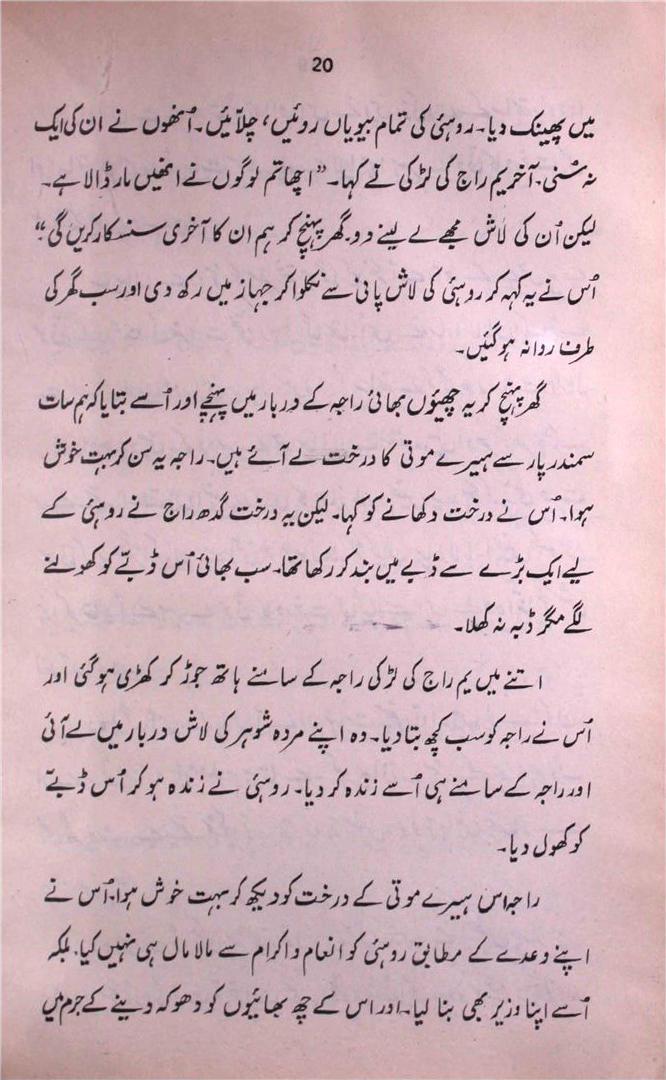 20
میں پھینک دیا۔ روہئی کی تمام بیویاں روئیں، چلّائیں۔ اُنھوں نے ان کی ایک
نہ سُنی۔ آخر یم راج کی لڑکی نے کہا۔ "اچھا تم لوگوں نے انھیں مار ڈالا ہے۔
لیکن اُن کی لاش مجھے لے لینے دو۔ گھر پہنچ کر ہم ان کا آخری سنسکار کریں گی۔"
اُس نے یہ کہہ کر روہئی کی لاش پانی سے نکلوا کر جہاز میں رکھ دی اور سب گھر کی
طرف روانہ ہو گئیں۔
گھر پہنچ کر یہ چھیؤں بھائی راجہ کے دربار میں پہنچے اور اُسے بتایا کہ ہم سات
سمندر پار سے ہیرے موتی کا درخت لے آئے ہیں۔ راجہ یہ سن کر بہت خوش
ہوا۔ اُس نے درخت دکھانے کو کہا۔ لیکن یہ درخت گدھ راج نے روہئی کے
لیے ایک بڑے سے ڈبے میں بند کر رکھا تھا۔ سب بھائی اُس ڈبّے کو کھولنے
لگے مگر ڈبہ نہ کھلا۔
اتنے میں یم راج کی لڑکی راجہ کے سامنے ہاتھ جوڑ کر کھڑی ہو گئی اور
اُس نے راجہ کو سب کچھ بتا دیا۔ وہ اپنے مردہ شوہر کی لاش دربار میں لے آئی
اور راجہ کے سامنے ہی اُسے زندہ کر دیا۔ روہئی نے زندہ ہو کر اُس ڈبّے
کو کھول دیا۔
راجہ اس ہیرے موتی کے درخت کو دیکھ کر بہت خوش ہوا۔ اُس نے
اپنے وعدے کے مطابق روہئی کو انعام و اکرام سے مالا مال ہی نہیں کیا۔ بلکہ
اُسے اپنا وزیر بھی بنا لیا۔ اور اس کے چھ بھائیوں کو دھوکہ دینے کے جرم میں